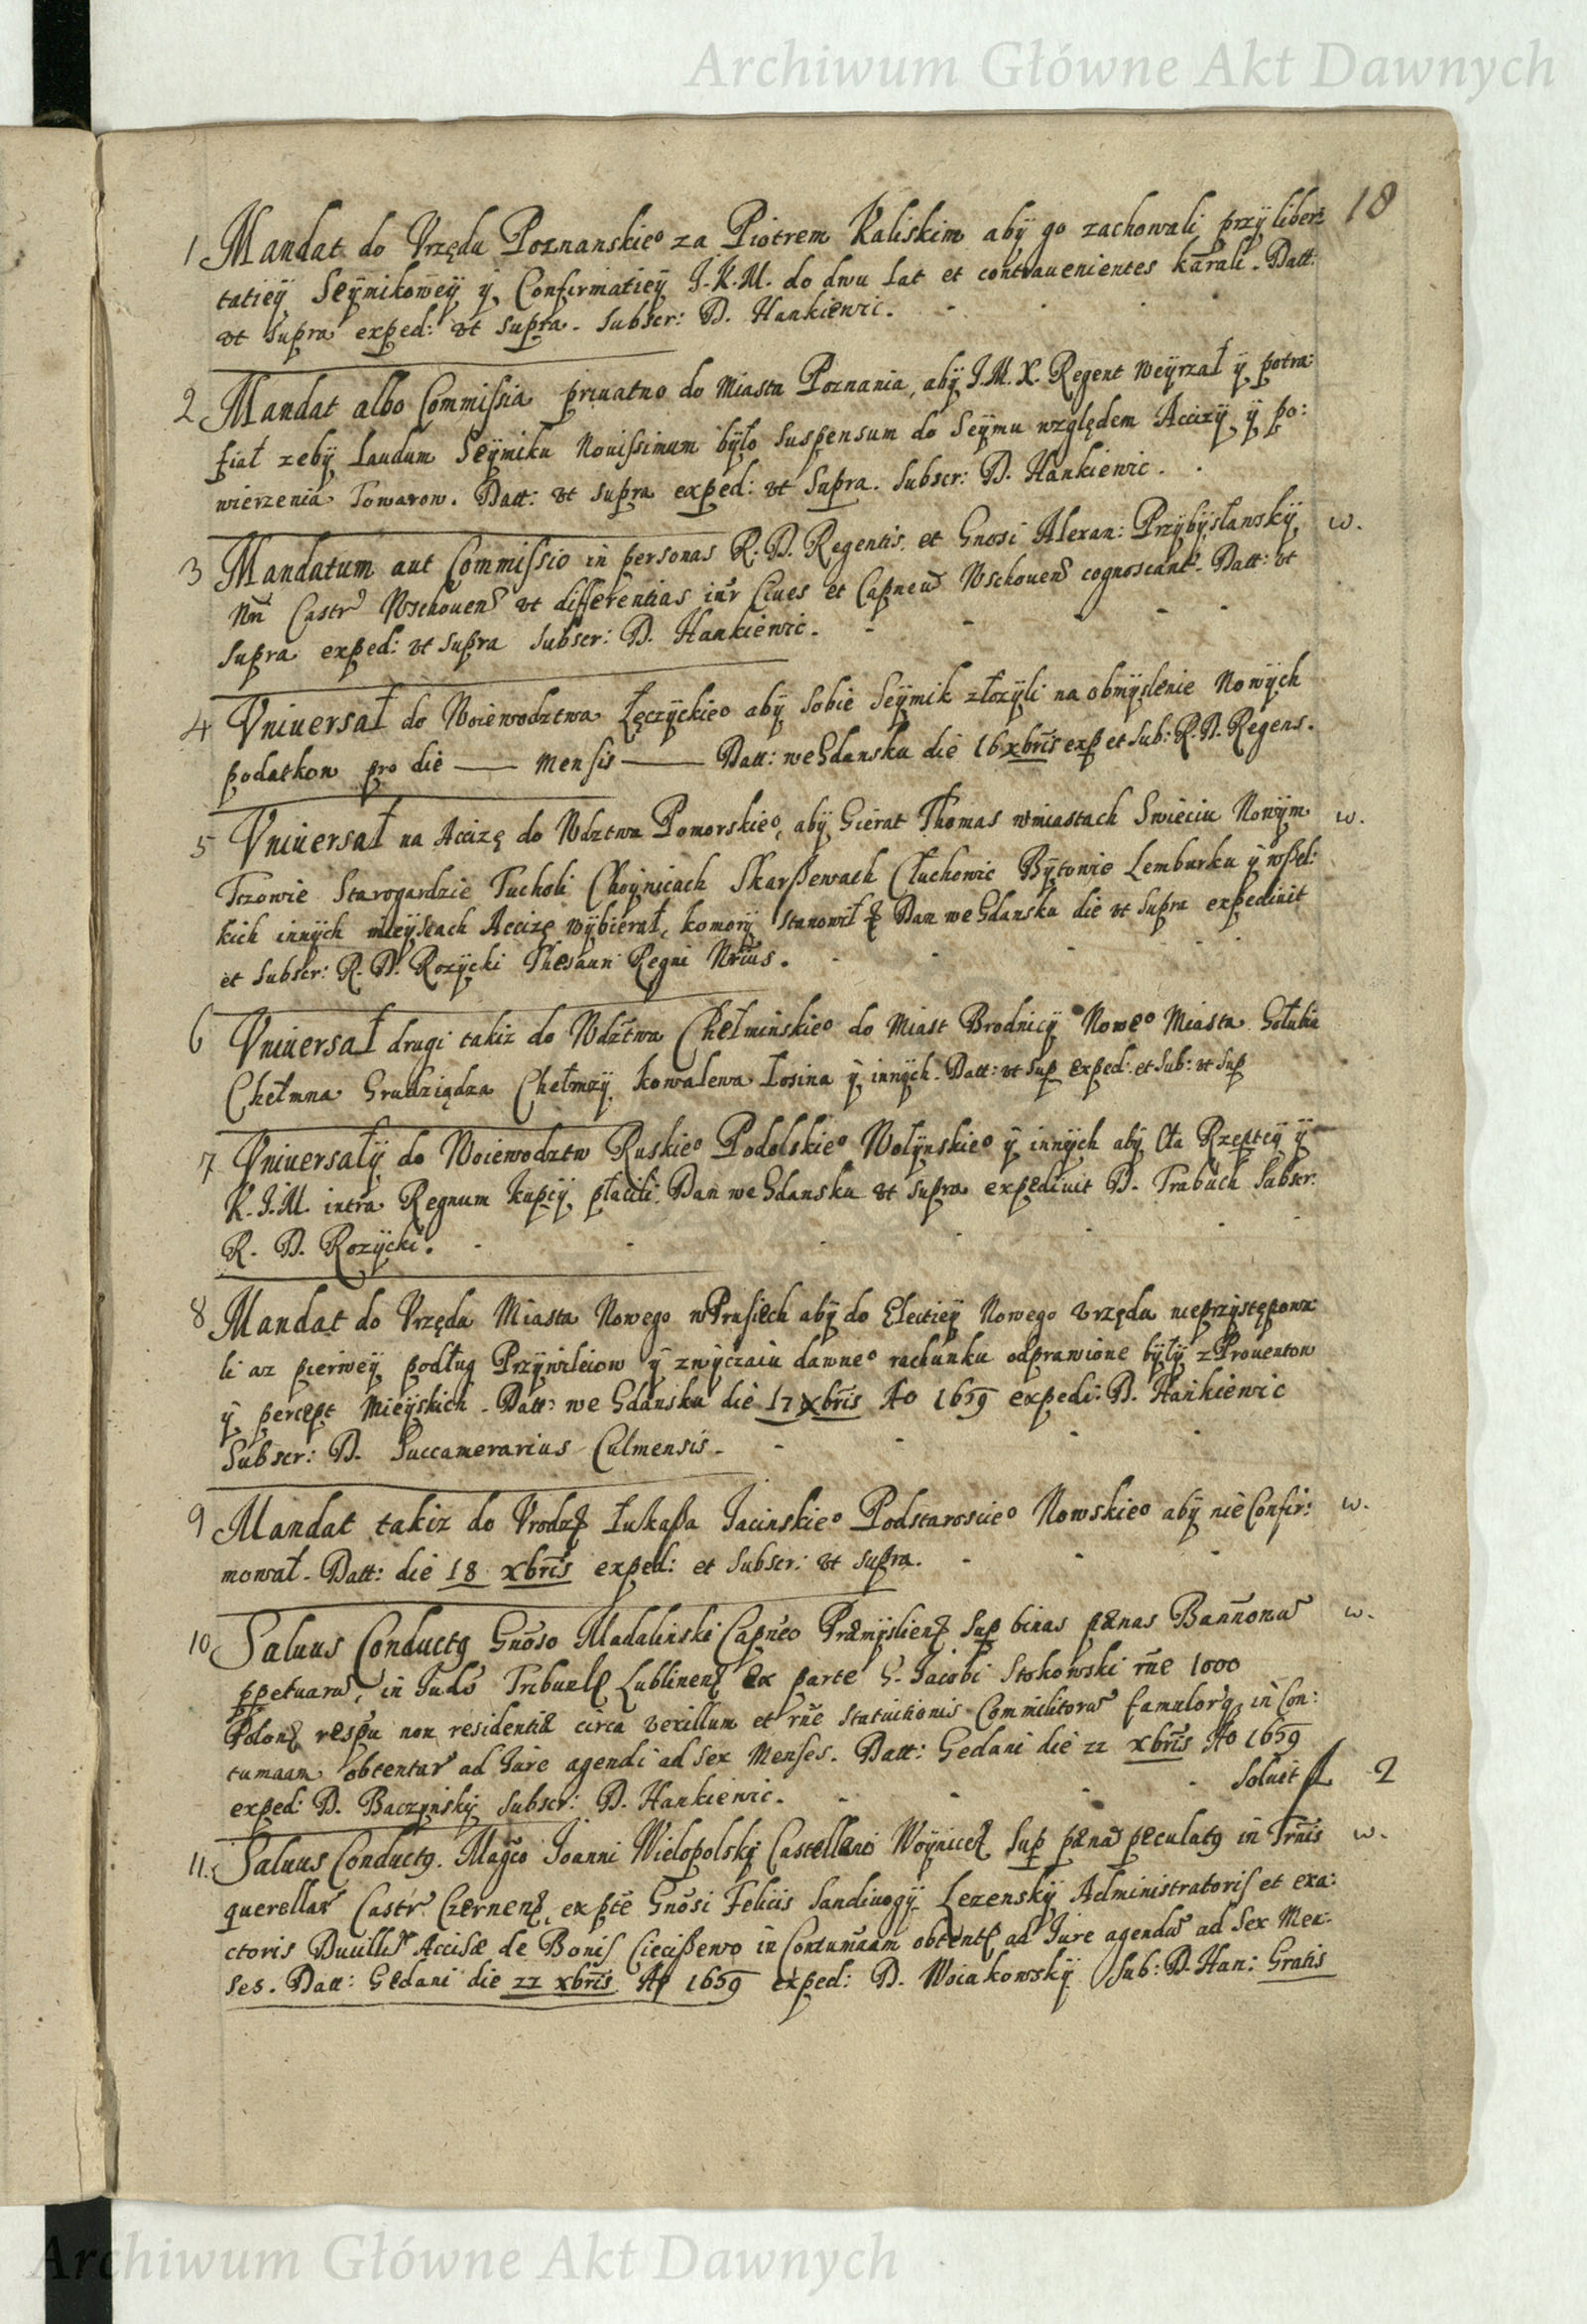 Archiwum Główne Akt Dawnych
18
1 Mandat do Vrzędu Poznanskieo za Piotrem Kaliskim abÿ go zachowali przÿ liber:
tatieÿ Seÿmikoweÿ ÿ Confirmatieÿ J.K.M. do dwu Lat et contrauenientes karali. Datt:
vt supra exped: vt supra. Subscr: D. Hankiewic.
2 Mandat albo Commissia priuatno do Miasta Poznania, abÿ J.M.X. Regent weÿrzał ÿ potra:
fiał zebÿ Laudum Seÿmiku Nouissimum bÿło suspensum do Seÿmu względem Accizÿ ÿ po:
wierzenia Towarow. Datt: vt supra exped: vt supra. Subscr: D. Hankiewic.
3 Mandatum aut Commissio in personas R.D. Regentis et Gnosi Alexan: Przÿbÿsławskÿ w.
Nri Castr Wschouens vt differentias inr Ciues et Capneu Wschouens cognoscant. Datt: vt
supra exped: vt supra subscr: D. Hankiewic.
4 Vniuersał do Woiewodztwa Łęczÿckieo abÿ sobie Seÿmik złozÿli na obmÿslenie Nowÿch
podatkow pro die — Mensis — Datt: we Gdansku die 16 xbris exp et Sub: R.D. Regens.
5 Vniuersał na Accizę do Wdztwa Pomorskieo, abÿ Gierat Thomas w miastach Swieciu Nowÿm w.
Tczowie Starogardzie Tucholi Choÿnicach Skarßewach Człuchowie Bÿtowie Lemburku ÿ wßel:
kich innÿch mieÿscach Accizę wÿbierał, komorÿ stanowił Dan we Gdansku die vt supra expediuit
et subscr: R.D. Rozÿcki Thesauri Regni Nrius.
6 Vniuersał drugi takiz do Wdztwa Chełminskieo do Miast Brodnicÿ Noweo Miasta Gołubia
Chełmna Grudziądza Chełmzÿ, Kowalewa Łosina ÿ innÿch. Datt: vt sup exped: et sub: vt sup
7 Vniuersałÿ do Woiewodztw Ruskieo Podolskieo Wołÿnskieo ÿ innÿch abÿ Cła Rzepteÿ ÿ
K.J.M. intra Regnum kupcÿ płacili. Dan we Gdansku vt supra expediuit D. Trabuch subscr:
R. D. Rozÿcki.
8 Mandat do Vrzędu Miasta Nowego w Prusiech abÿ do Electieÿ Nowego vrzędu nieprzÿstępowa:
li az pierweÿ podług Przÿwileiow ÿ zwÿczaiu dawneo rachunku odprawione bÿłÿ z Prouentow
ÿ percept Mieÿskich. Datt: we Gdansku die 17 xbris Ao 1659 expedi: D. Hankiewic
Subscr: D. Succamerarius Culmensis.
9 Mandat takiz do Vrodz Łukaßa Jacinskieo Podstaroscieo Nowskieo abÿ nie Confir: w.
mował. Datt: die 18 xbris exped: et subscr: vt supra.
10 Saluus Conductq Gnoso Madalinski Capneo Præmÿsliens sup binas pænas Bannonu w.
ppetuaru, in Tribunl Lublinens ex parte G. Jacobi Stokowski rne 1000
Polon respu non residentiæ circa vexillum et rne statuitionis Commilitoru famulorq in Con:
tumaam obtentar ad Jure agendi ad sex Menses. Datt: Gedani die 22 xbris Ao 1659
exped: D. Baczÿnskÿ subscr: D. Hankiewic. Soluit fl 2
11. Saluus Conductq. Magco Joanni Wielopolskÿ Castellano Woÿnicens sup pæna peculatq in Trnis w.
querellar Castr Czernens, ex pte Gnosi Felicis Sandiuogÿ Lezenskÿ Administratoris et exa:
ctoris Duillis Accisæ de Bonis Ciecißewo in Contumaam obtent ad Jure agendu ad sex Men:
ses. Datt: Gedani die 22 xbris Ao 1659 exped: D. Woiakowskÿ Sub: D. Han: Gratis
Archiwum Główne Akt Dawnych